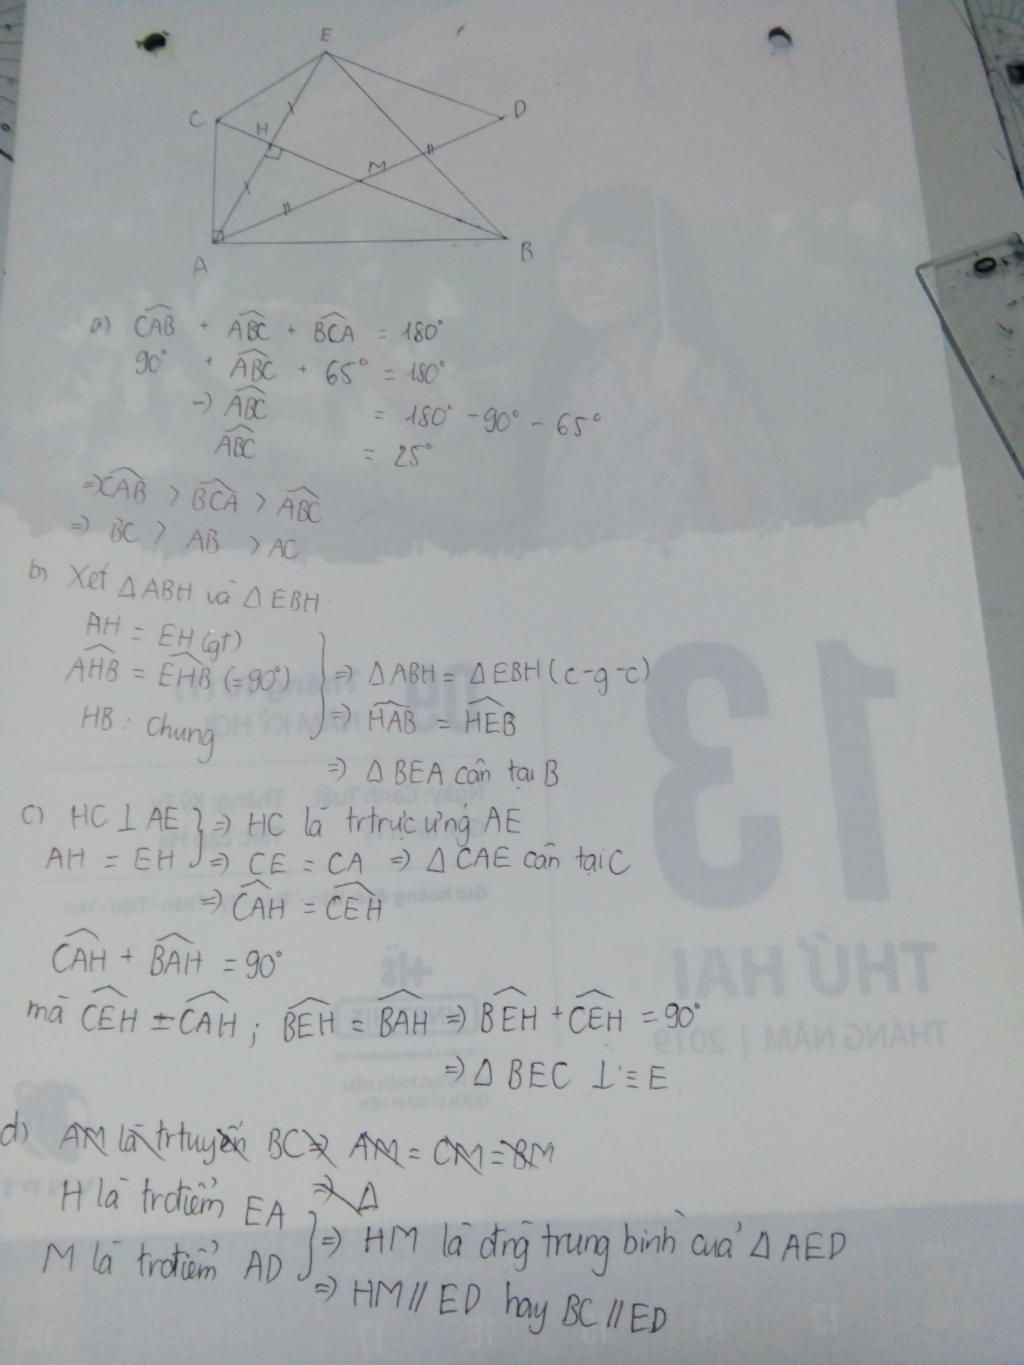 E
C
H
D
M
A
B
a) CAB + ABC + BCA = 180°
90° + ABC + 65° = 180°
→ ABC = 180° - 90° - 65°
ABC = 25°
⇒ CAB > BCA > ABC
⇒ BC > AB > AC
b) Xét ΔABH và ΔEBH:
AH = EH (gt)
AHB = EHB (=90°) ⇒ ΔABH = ΔEBH (c-g-c)
HB: Chung ⇒ HAB = HEB
⇒ ΔBEA cân tại B
c) HC ⊥ AE ⇒ HC là trtrực ứng AE
AH = EH ⇒ CE = CA ⇒ ΔCAE cân tại C
⇒ CAH = CEH
CAH + BAH = 90°
mà CEH = CAH; BEH = BAH ⇒ BEH + CEH = 90°
⇒ ΔBEC ⊥ ≡ E
d) AM là trtuyến BC ⇒ AM = CM = BM
⇒ Δ
H là trđiểm EA
M là trđiểm AD ⇒ HM là đng trung bình của ΔAED
⇒ HM // ED hay BC // ED
13
THỨ HAI
THÁNG NĂM | 2019